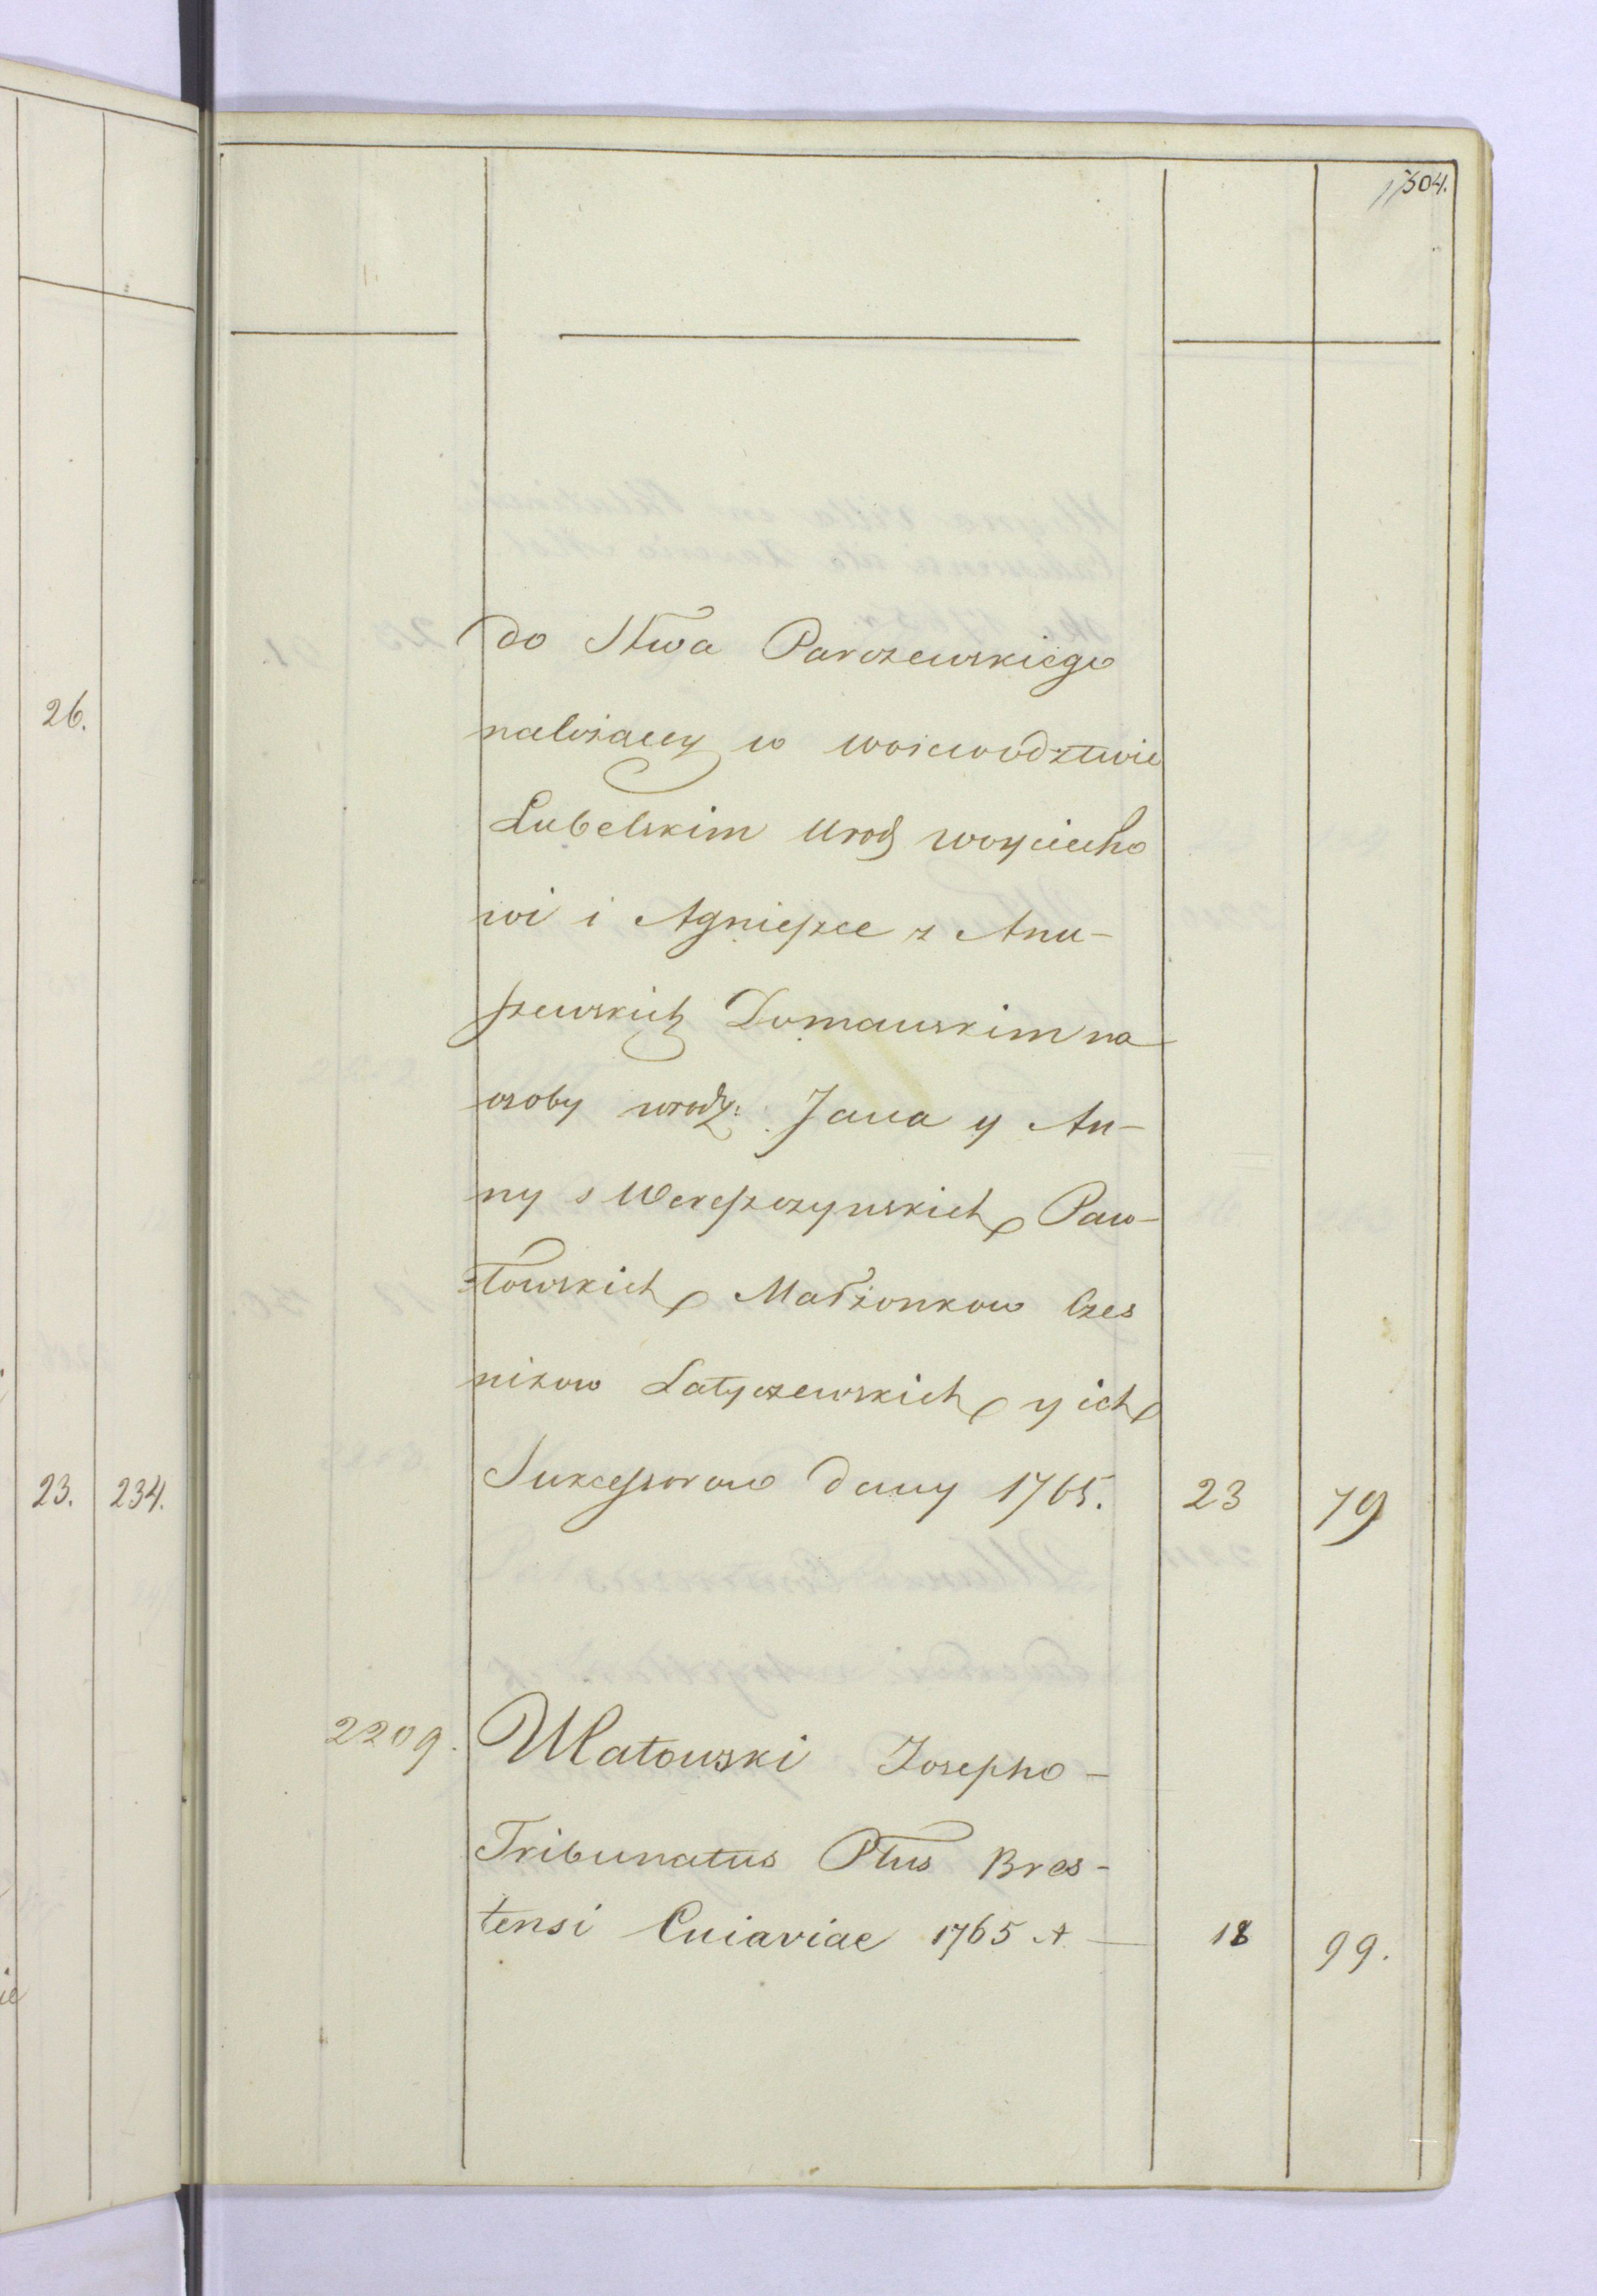 504.
26.
23. 234.
do Stwa Parczewskiego
należący w woiewodztwie
Lubelskim Urodz woyciecho
wi i Agnieszce z Anu-
szewskich Domauskim na
osoby urodz: Jana y An-
ny s Wereszczynskich Paw-
łowskich Małżonkow Czes
nikow Latyczewskich y ich
Sukcessorow dany 1765. 23 79
2209. Ulatowski Josepho-
Tribunatus Pttus Bres-
tensi Cuiaviae 1765 A. — 18 99.